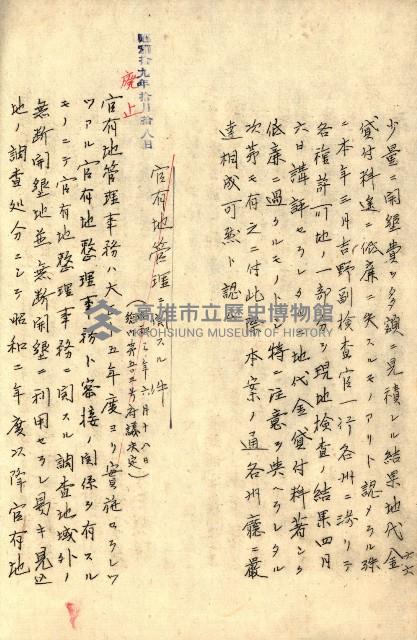 少量ニ開墾費ヲ多額ニ見積レル結果地代金
貸付料遙ニ低廉ニ失スルモノアリト認メラル殊
ニ本年三月吉野副検査官一行各州ニ渉リテ
各種許可地ノ一部ヲ現地検査ノ結果四月
六日講評セラレタル 地代金貸付料著シク
低廉ニ過クルモノト 特ニ注意ヲ与ヘラレタル
次第モ有之ニ付此際本案ノ通各州廳ニ嚴
達相成可然ト認
昭和拾九年拾月拾八日
廃止
官有地管理ニ関スル件
六月十八日
府議決定
官有地管理事務ハ大 五年度ヨリ實施セラレツ
ツアル官有地整理事務ト密接ノ関係ヲ有スル
モノニテ官有地整理事務ニ関スル調査地域外ノ
無断開墾地並無断開墾ニ利用セラレ易キ見込
地ノ調査処分ニシテ昭和二年度以降官有地
高雄市立歷史博物館
KAOHSIUNG MUSEUM OF HISTORY